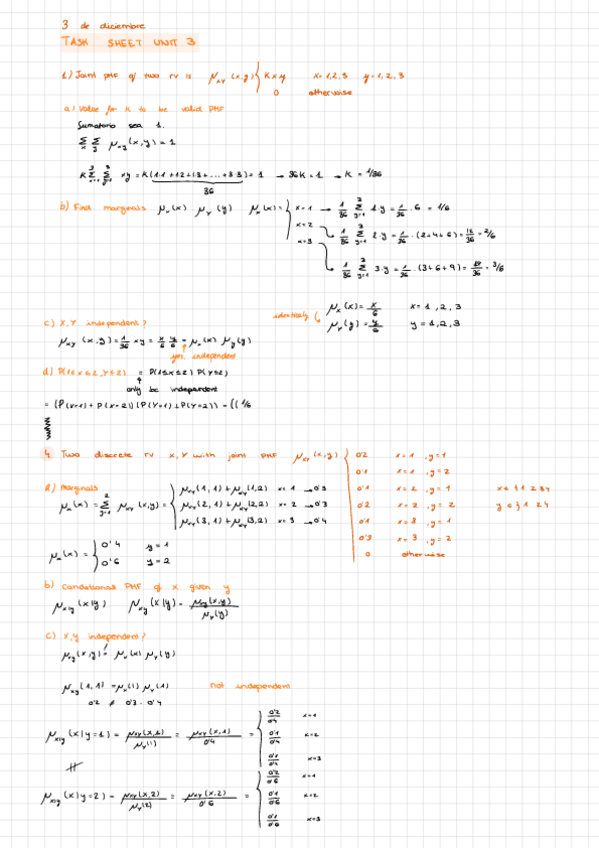 3 de diciembre
TASK SHEET UNIT 3
1) Joint PMF of two rv is μxy (x,y) { Kxy x=1,2,3 y=1,2,3
0 otherwise
a) Value for K to be valid PMF
Sumatorio sea 1.
Σx Σy μxy (x,y) = 1
K Σx=1^3 Σy=1^3 xy = K(1·1 + 1·2 + 1·3 + ... + 3·3) = 1 → 36K = 1 → K = 1/36
36
b) Find marginals μx(x) μY(y) μx(x) = { x=1 → 1/36 Σy=1^3 1·y = 1/36 · 6 = 1/6
x=2 → 1/36 Σy=1^3 2·y = 1/36 · (2+4+6) = 12/36 = 2/6
x=3 → 1/36 Σy=1^3 3·y = 1/36 · (3+6+9) = 18/36 = 3/6
μx(x) = x/6 x=1,2,3
μY(y) = y/6 y=1,2,3
c) X,Y independent?
μxy (x,y) = 1/36 xy = x/6 y/6 = μx(x) μy(y)
yes, independent
d) P(1≤X≤2, Y≤2) = P(1≤X≤2) P(Y≤2)
only bc independent
= (P(X=1) + P(X=2)) (P(Y=1) + P(Y=2)) = ((1/6
4 Two discrete rv X,Y with joint PMF μxy (x,y) { 0'2 x=1, y=1
0'1 x=1, y=2
0'1 x=2, y=1
0'2 x=2, y=2
0'1 x=3, y=1
0'3 x=3, y=2
0 otherwise
a) marginals
μx(x) = Σy=1^2 μxy (x,y) = { μxy (1,1) + μxy (1,2) x=1 → 0'3
μxy (2,1) + μxy (2,2) x=2 → 0'3
μxy (3,1) + μxy (3,2) x=3 → 0'4
μx(x) = { 0'4 y=1
0'6 y=2
b) Conditional PMF of x given y
μx|y (x|y) μx|y (x|y) = μxy(x,y) / μY(y)
c) X,Y independent?
μxy (x,y) = μx(x) μy(y)
μxy (1,1) = μx(1) μY(1) not independent
0'2 ≠ 0'3 · 0'4
μx|y (x|y=1) = μxy(x,1) / μY(1) = μxy(x,1) / 0'4 = { 0'2/0'4 x=1
0'1/0'4 x=2
0'1/0'4 x=3
μx|y (x|y=2) = μxy(x,2) / μY(2) = μxy(x,2) / 0'6 = { x=1
0'6 x=2
0'6 x=3